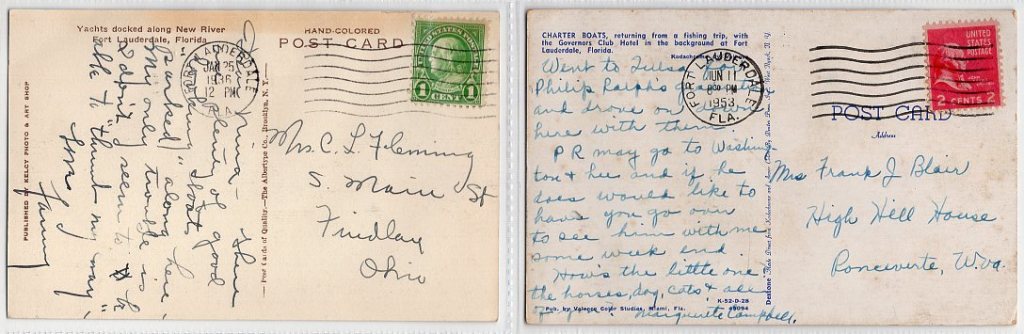 Yachts docked along New River
Fort Lauderdale, Florida
HAND-COLORED
POST CARD
UNITED STATES POSTAGE
1 CENT 1
LAUDERDALE
JAN 25
1936
12 PM
There
is plenty of good
parked" along here
My only trouble is
I don't seem to be
able to "thumb my way"
Love
Mrs. C. L. Fleming
S. Main St
Findlay
Ohio
PUBLISHED BY KELCY PHOTO & ART SHOP
Post Cards of Quality.—The Albertype Co., Brooklyn, N. Y.
CHARTER BOATS, returning from a fishing trip, with
the Governors Club Hotel in the background at Fort
Lauderdale, Florida.
Kodachrome
FORT LAUDERDALE
JUN 11
8 PM
1953
FLA.
UNITED
STATES
POSTAGE
2 CENTS 2
POST CARD
Address
Went to
Philip Ralph's
and drove on down
here with them.
P R may go to Washing-
ton & hee and if he
does would like to
have you go over
to see him with me
some week end.
How's the little one
the horses, dog, cats & all
Marguerite Campbell.
Mrs Frank J Blair
High Hill House
Ronceverte, W.Va.
K-52-D-28
Pub. by Valence Color Studies, Miami, Fla.